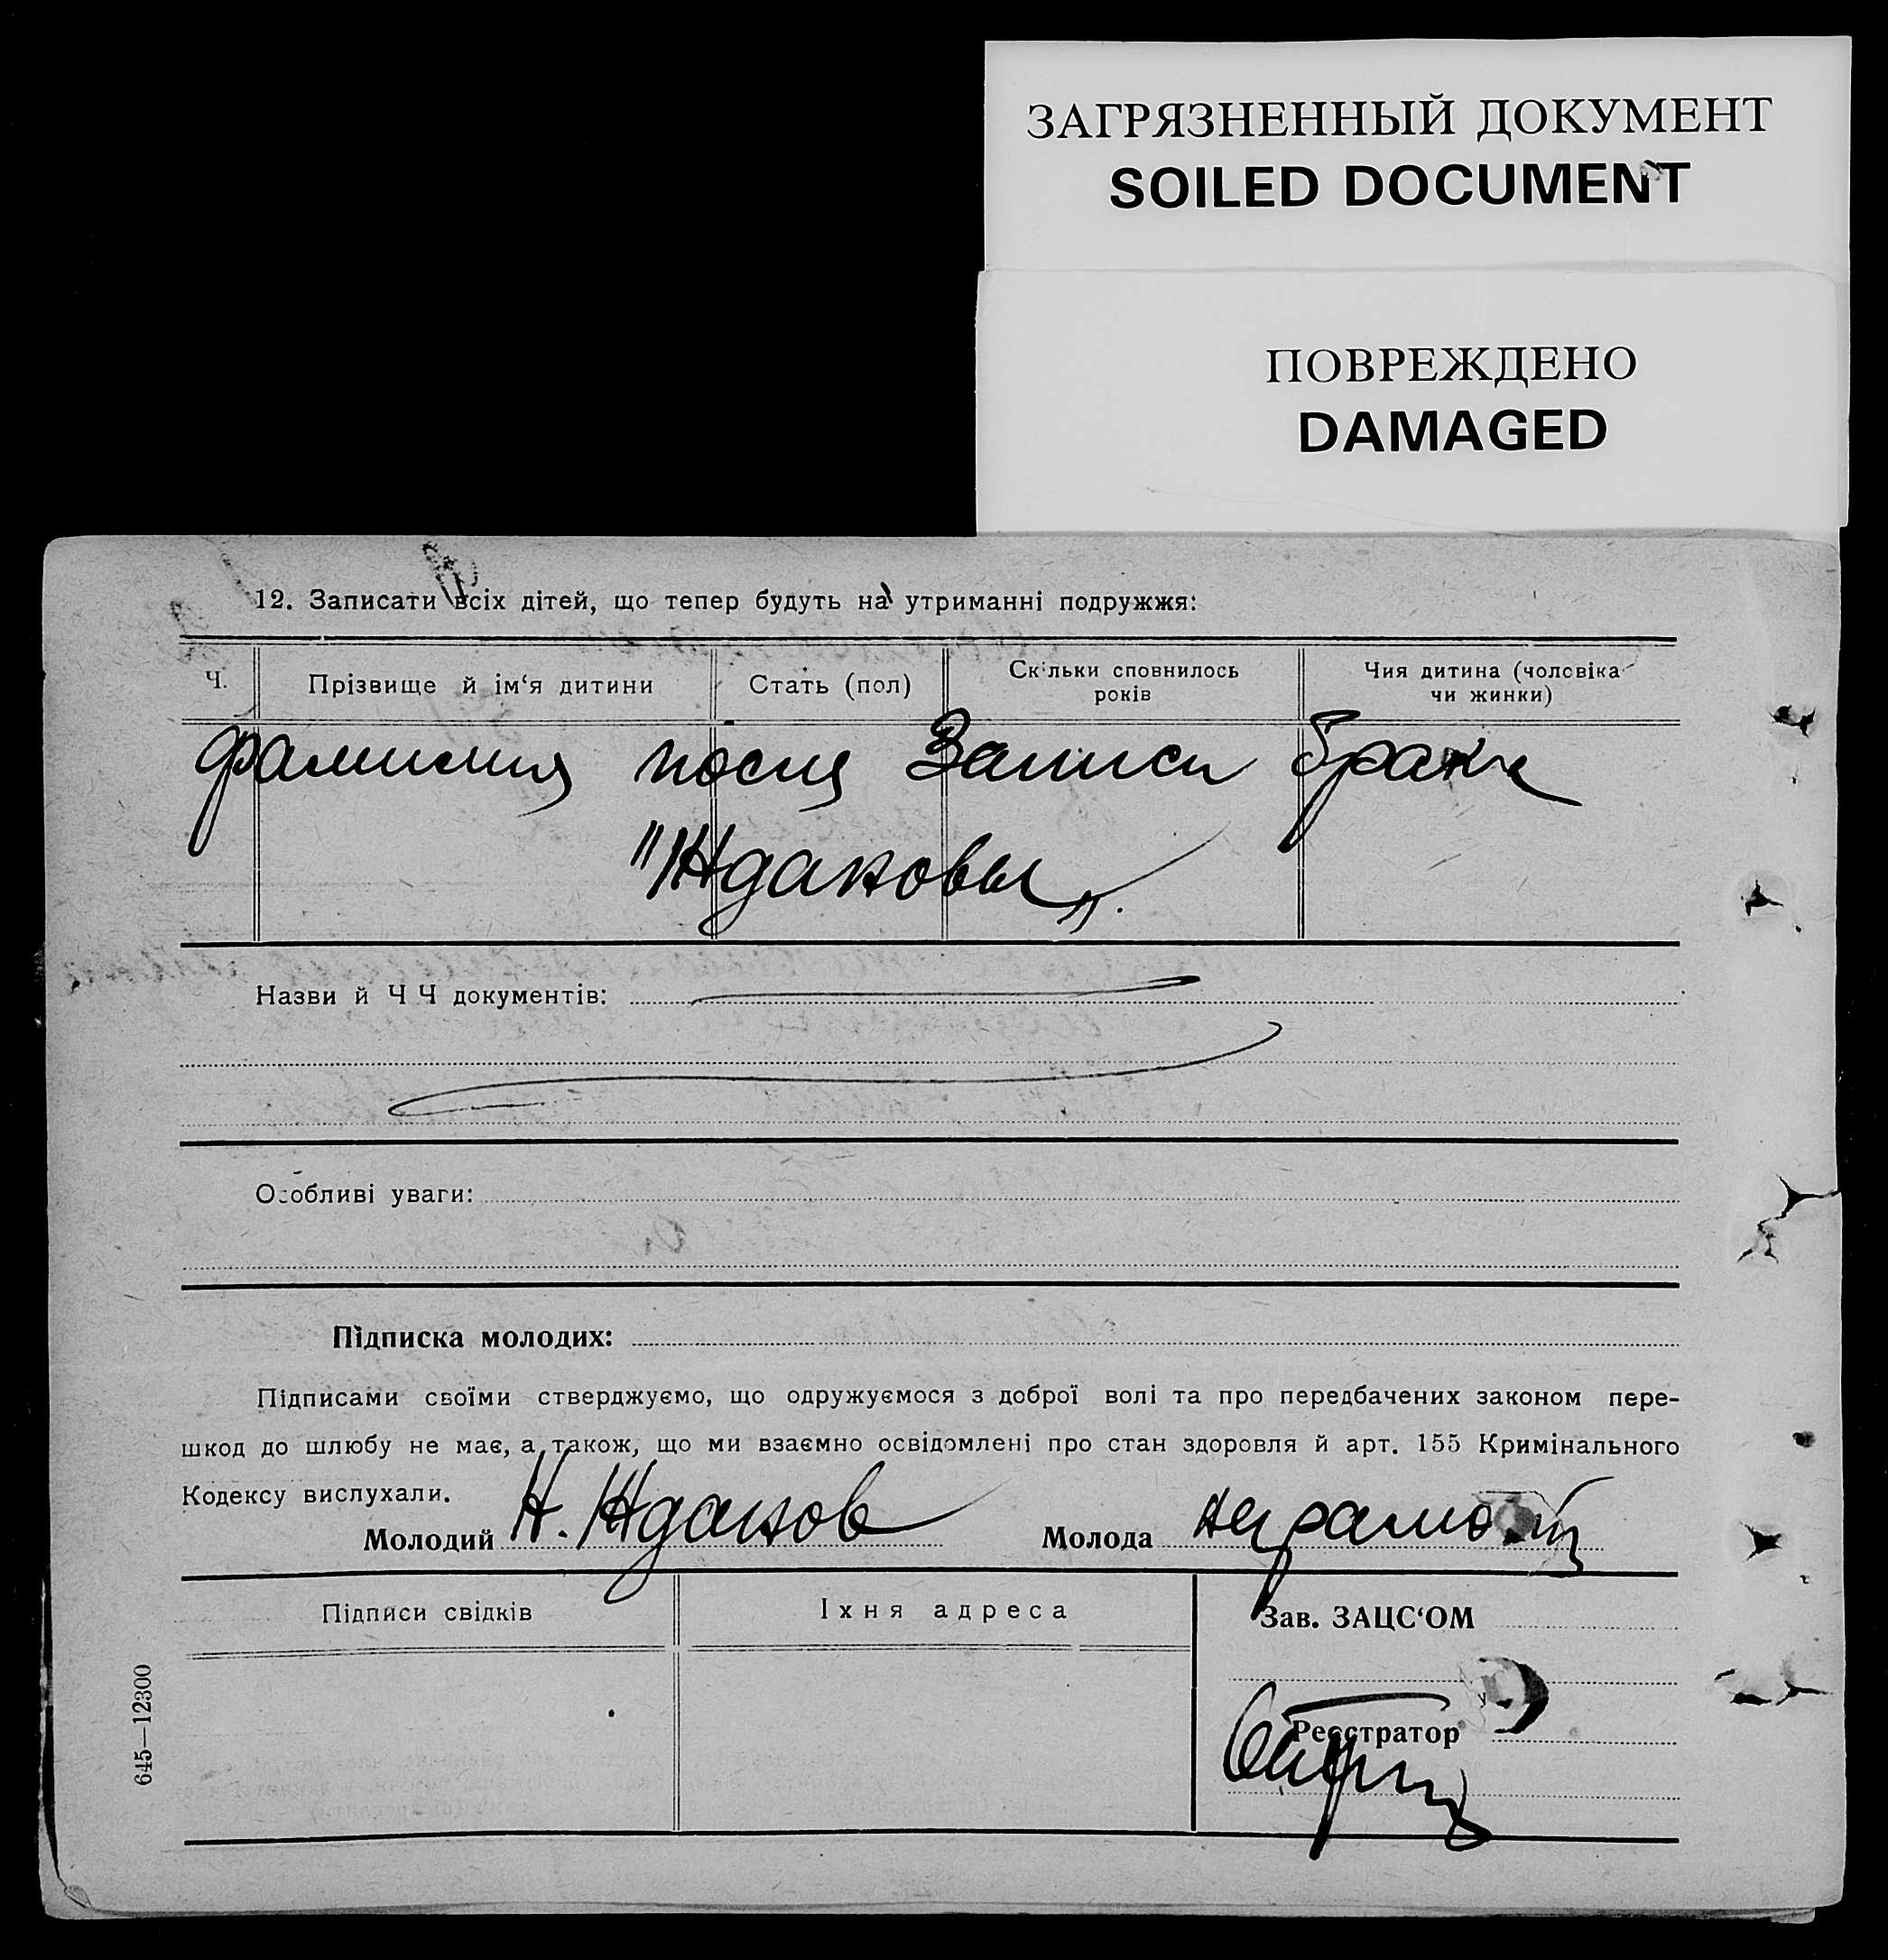 ЗАГРЯЗНЕННЫЙ ДОКУМЕНТ
SOILED DOCUMENT
ПОВРЕЖДЕНО
DAMAGED
12. Записати всіх дітей, що тепер будуть на утриманні подружжя:
Ч.
Прізвище й ім‘я дитини
Стать (пол)
Скільки сповнилось
років
Чия дитина (чоловіка
чи жинки)
фамилия после Записи брака
"Ждановы„.
Назви й Ч Ч документів:
Особливі уваги:
Підписка молодих:
Підписами своїми стверджуємо, що одружуємося з доброї волі та про передбачених законом пере-
шкод до шлюбу не має, а також, що ми взаємно освідомлені про стан здоровля й арт. 155 Кримінального
Кодексу вислухали.
Молодий Н. Жданов Молода неграмотн
Підписи свідків
Їхня адреса
Зав. ЗАЦС‘ОМ
Реєстратор
645—12300